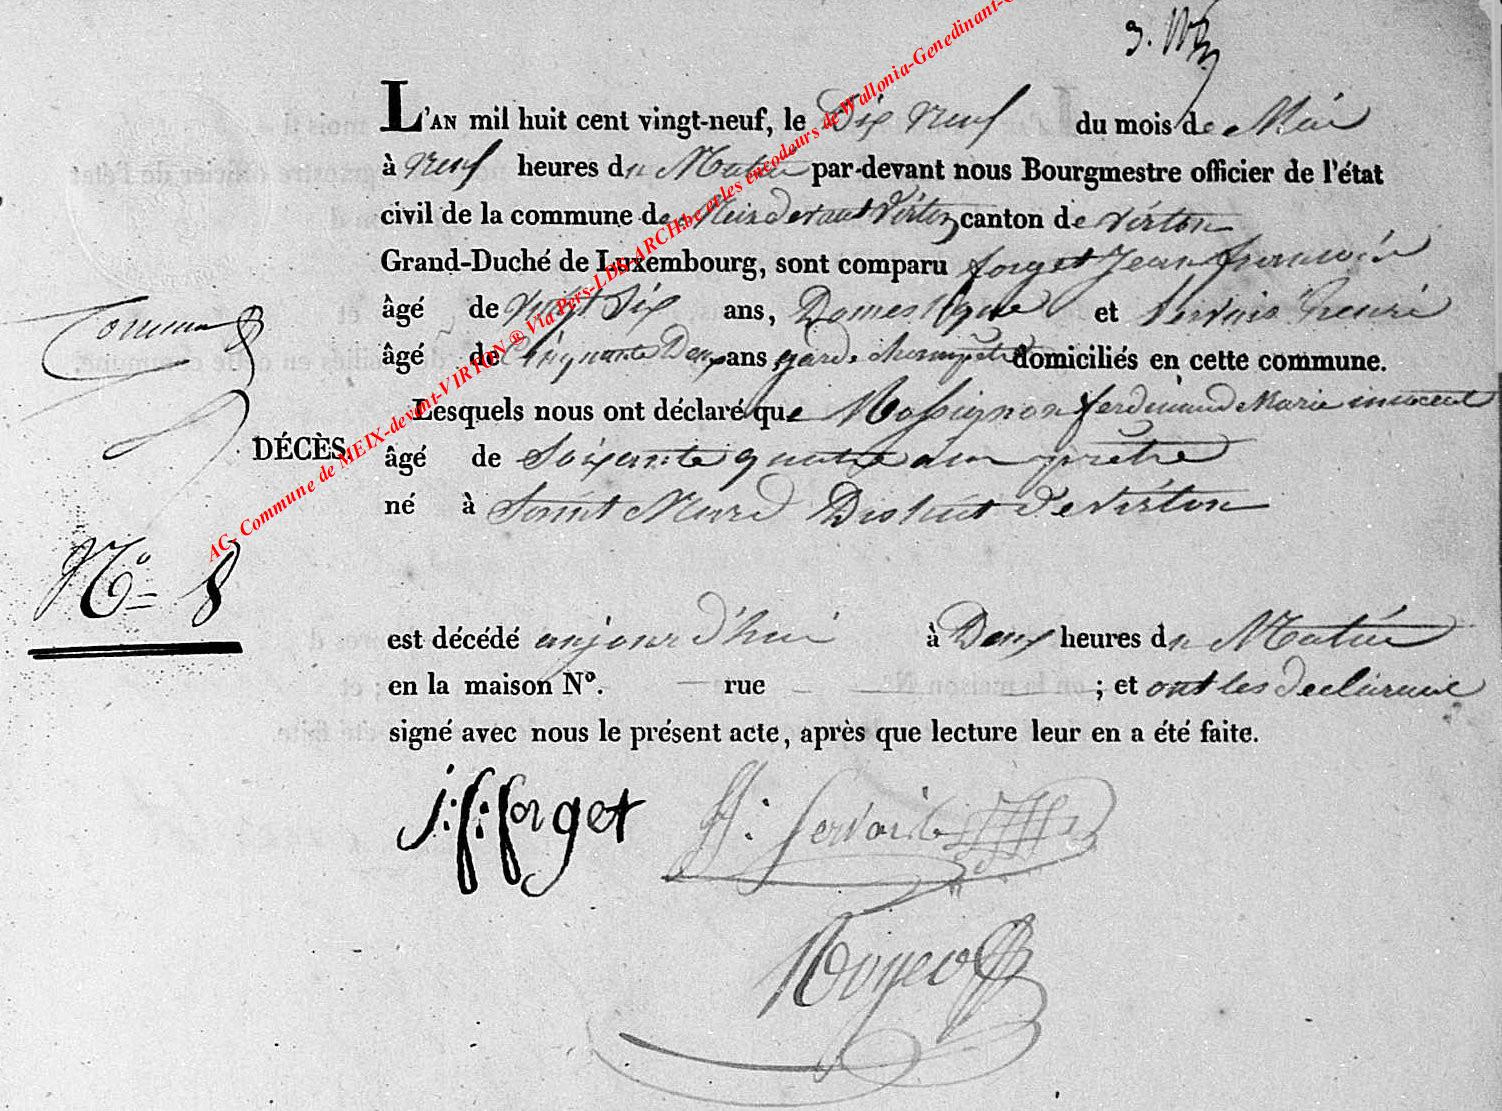 L'AN mil huit cent vingt-neuf, le Dix neuf du mois de Mai
à neuf heures du Matin par-devant nous Bourgmestre officier de l'état
civil de la commune de Meix devant Virton canton de Virton
Grand-Duché de Luxembourg, sont comparu forget Jean françois
âgé de vingt Six ans, Domestique et Servais henri
âgé de Cinquante Deux ans garde champêtre domiciliés en cette commune.
Lesquels nous ont déclaré que Massignon ferdinand Marie innocent
DÉCÈS.
âgé de Soixante quatre ans prêtre
né à Saint Mard District de Virton
N.° 8
est décédé aujourd'hui à Deux heures du Matin
en la maison N°. — rue — ; et ont les declarant
signé avec nous le présent acte, après que lecture leur en a été faite.
j: f: forget H: Servais
AC. Commune de MEIX-devant-VIRTON ® Via Pers-LDS-ARCH.be et les encodeurs de Wallonia-Genedinant-